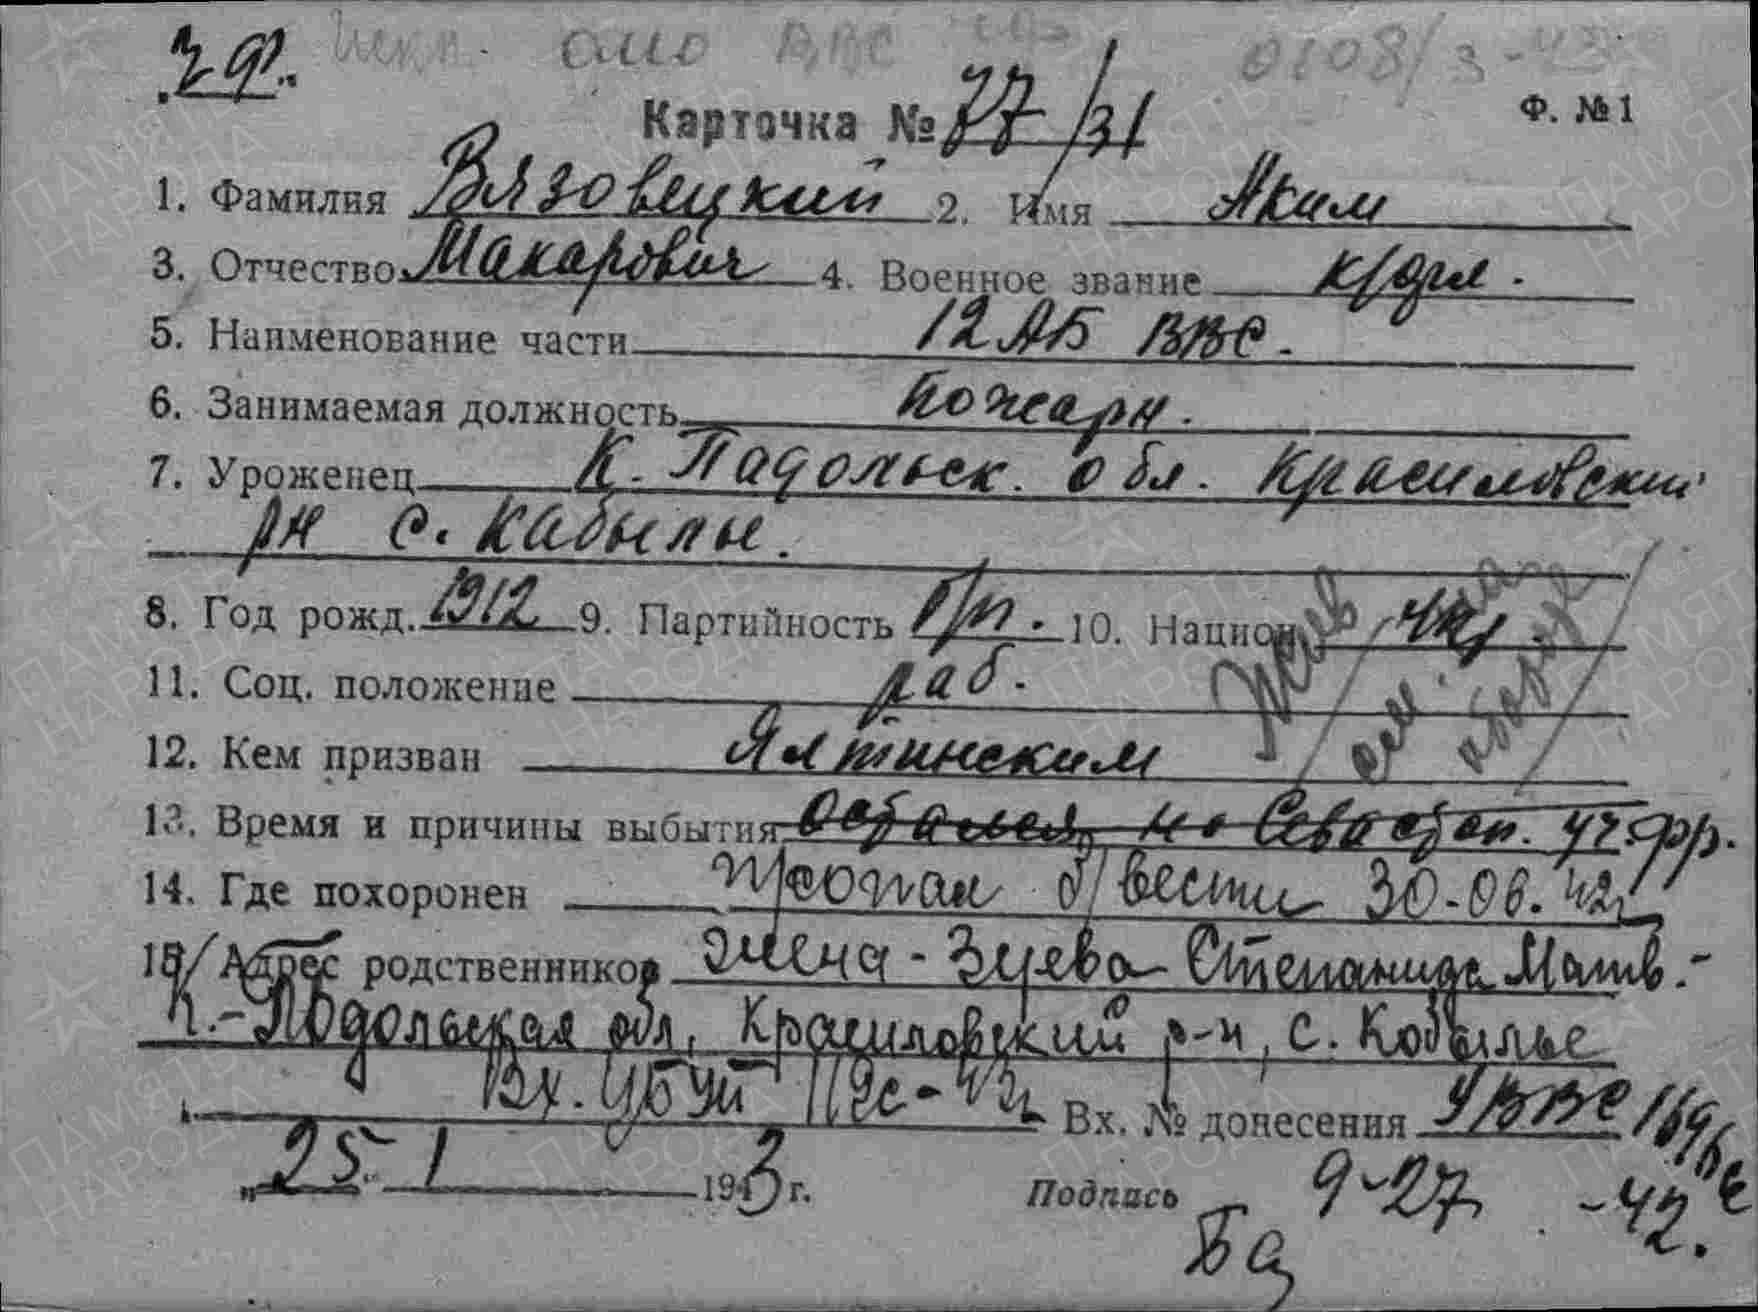 ч ф.
0108/3-43
Карточка № 77/31
Ф. № 1
1. Фамилия Вязовецкий 2. Имя Аким
3. Отчество Макарович 4. Военное звание к/фл.
5. Наименование части 12 АБ ВВС.
6. Занимаемая должность пожарн.
7. Уроженец К. Падольск. обл. Красиловский
рн с. Кабылье.
8. Год рожд. 1912 9. Партийность б/п. 10. Национ. укр.
11. Соц. положение раб.
Жив
см. на
обороте
12. Кем призван Ялтинским
13. Время и причины выбытия Остался на Севастоп. уч. фр.
14. Где похоронен Пропал б/вести 30-06.42г
15/ Адрес родственников жена - Зуева Степанида Матв.-
К.-Подольская обл, Красиловский р-н, с. Кобылье
Вх. № донесения УВВС 1696с
"25" 1 1943 г. Подпись 9-27 -42.